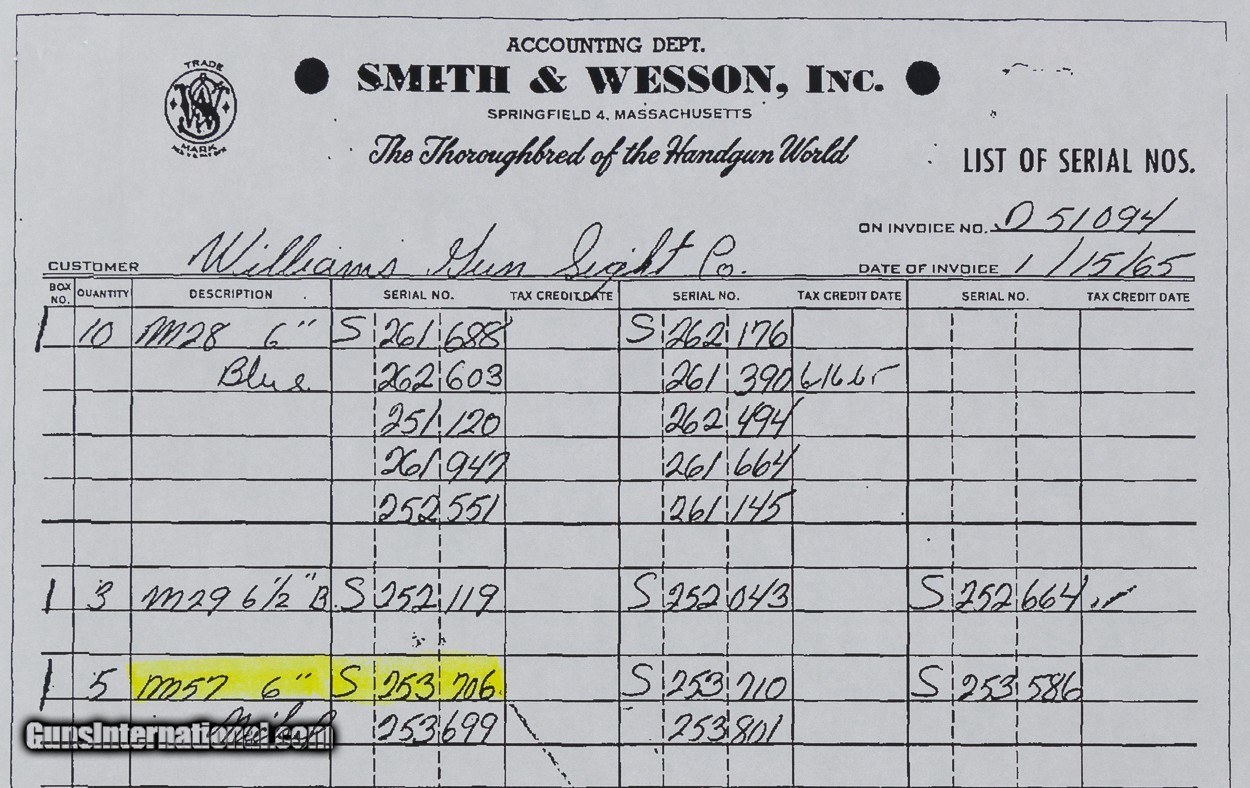 ACCOUNTING DEPT.
SMITH & WESSON, INC.
SPRINGFIELD 4, MASSACHUSETTS
The Thoroughbred of the Handgun World
TRADE
MARK
LIST OF SERIAL NOS.
ON INVOICE NO. D 51094
CUSTOMER Williams Gun Sight Co. DATE OF INVOICE 1/15/65
BOX NO. QUANTITY DESCRIPTION SERIAL NO. TAX CREDIT DATE SERIAL NO. TAX CREDIT DATE SERIAL NO. TAX CREDIT DATE
1 10 M28 6" S 261 688 S 262 176
Blue 262 603 261 390
251 120 262 494
261 947 261 664
252 551 261 145
1 3 M29 6 1/2" B S 252 119 S 252 043 S 252 664
1 5 M57 6" S 253 706 S 253 710 S 253 586
253 699 253 801
GunsInternational.com